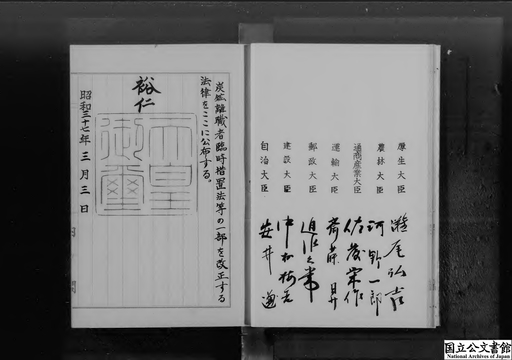 厚生大臣 灘尾弘吉
農林大臣 河野一郎
通商産業大臣 佐藤栄作
運輸大臣 斎藤昇
郵政大臣 迫水久常
建設大臣 中村梅吉
自治大臣 安井謙
炭鉱離職者臨時措置法等の一部を改正する
法律をここに公布する。
裕仁
天皇
御璽
昭和三十七年三月三日
国立公文書館
National Archives of Japan